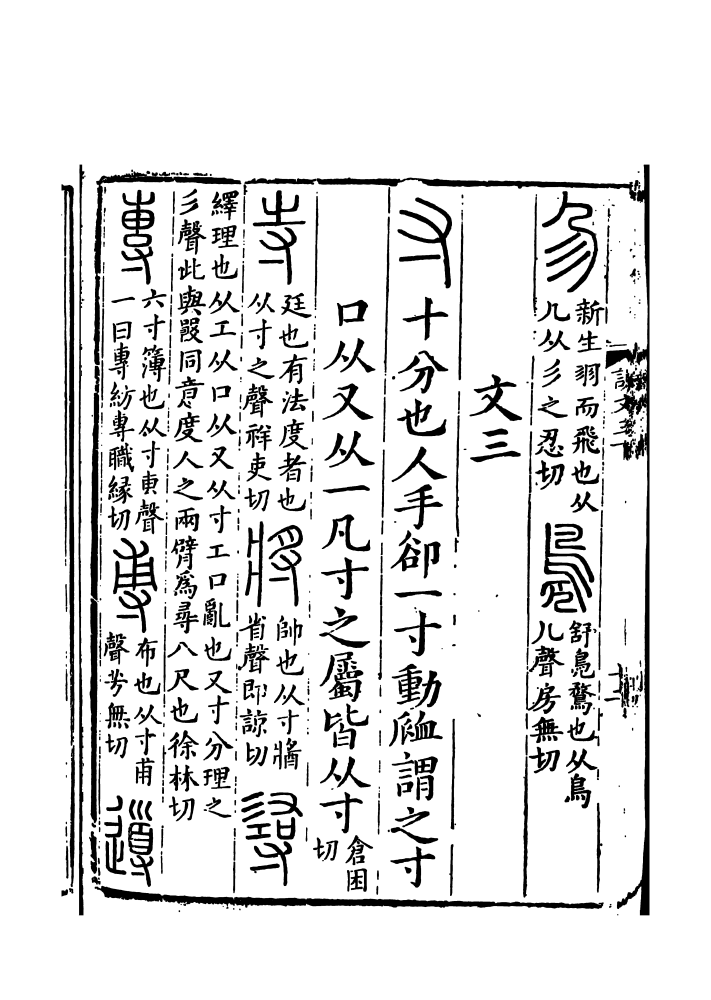 㐱新生羽而飛也从几从彡之忍切鳧舒鳧鶩也从鳥几聲房無切
文三
寸十分也人手卻一寸動𧖴謂之寸
口从又从一凡寸之屬皆从寸倉困切
寺廷也有法度者也从寸之聲祥吏切將帥也从寸省聲即諒切尋
繹理也从工从口从又从寸工口亂也又寸分理之
彡聲此與同意度人之兩臂爲尋八尺也徐林切
專六寸簿也从寸叀聲一曰專紡專職緣切尃布也从寸甫聲芳無切導